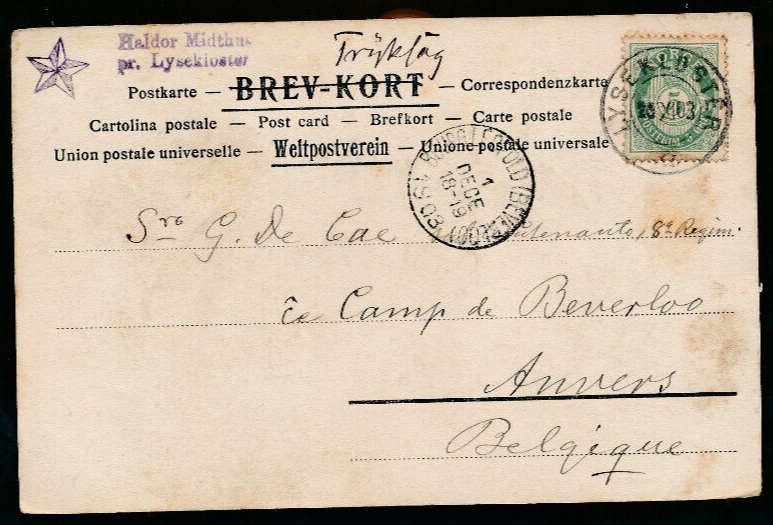 Haldor Midthus
pr. Lysekloster
Tryksag
Postkarte — BREV-KORT — Correspondenzkarte
Cartolina postale — Post card — Brefkort — Carte postale
Union postale universelle — Weltpostverein — Unione postale universale
LYSEKLOSTER
XII 03
5
BOURG LEOPOLD (BEVERLOO)
1
DECE
18-19
1903
Sro G. De Cae 8e Regim.
ce Camp de Beverloo
Anvers
Belgique